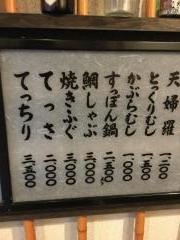 天婦羅 一、二〇〇
とっくりむし 一、〇〇〇
かぶらむし 一、五〇〇
すっぽん鍋 二、五〇〇
鯛しゃぶ 三、〇〇〇
焼きふぐ 三、〇〇〇
てっさ 二、〇〇〇
てっちり 三、五〇〇